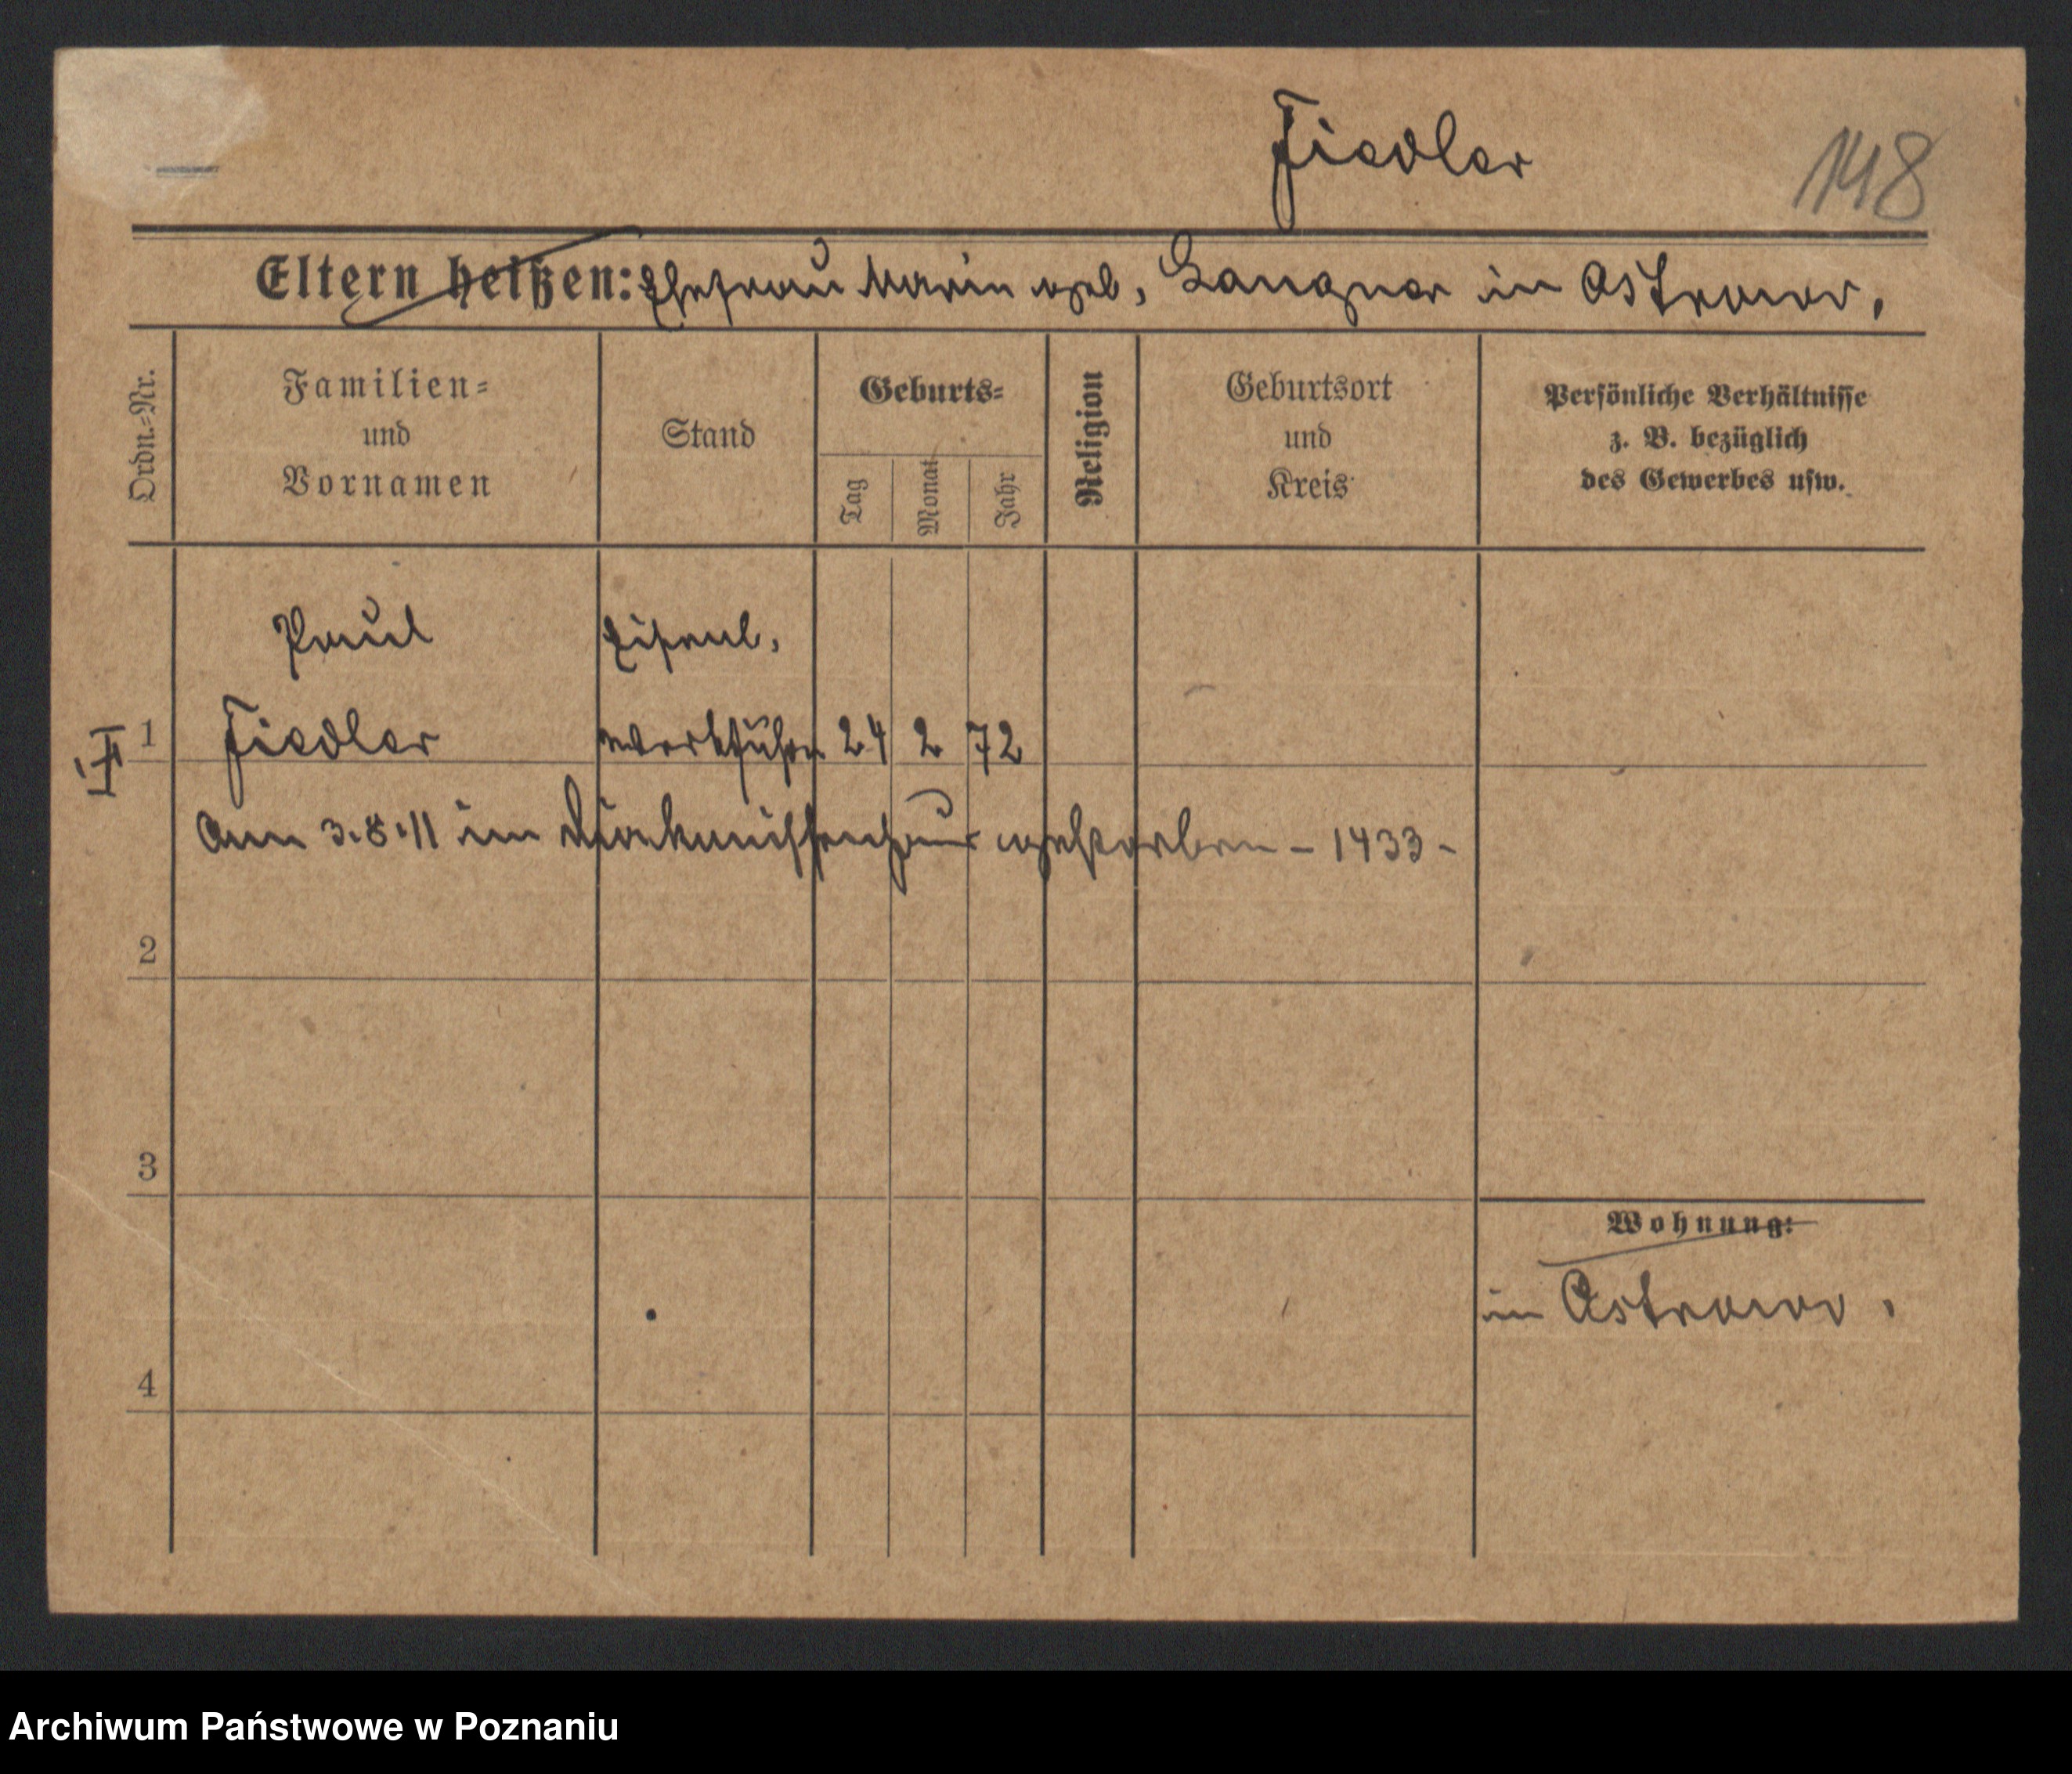 Fiedler
148
Eltern heißen: Ehefrau Marie geb. Langner in Ostrowo.
Ordn.=Nr.
Familien=
und
Vornamen
Stand
Geburts=
Tag
Monat
Jahr
Religion
Geburtsort
und
Kreis
Persönliche Verhältnisse
z. B. bezüglich
des Gewerbes usw.
Paul Eisenb.
1 Fiedler Werkführer 24 2 72
am 3.8.11 im Diakonissenhaus gestorben – 1433 –
2
3
Wohnung:
in Ostrowo.
4
Archiwum Państwowe w Poznaniu